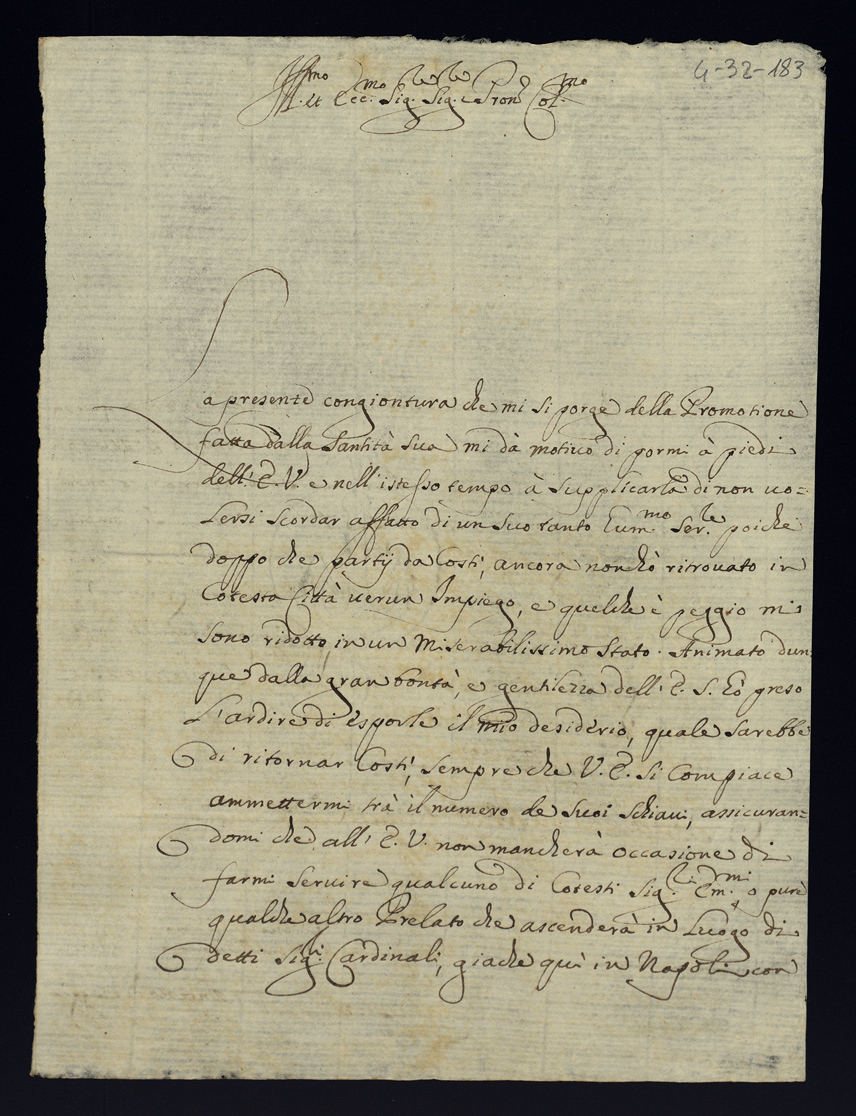 4-32-183
Ill.mo et Ecc.mo Sig.re Sig.re e Pron.e Col.mo
La presente congiontura che mi si porge della Promotione
fatta dalla Santità sua mi dà motiuo di pormi à piedi
dell' E. V. e nell' istesso tempo à supplicarla di non uo=
lersi scordar affatto di un suo tanto Eum.mo Ser.re poiche
doppo che partij da Costì, ancora non hò ritrouato in
Cotesta Città uerun Impiego, e quelche è peggio mi
sono ridotto in un Miserabilissimo Stato. Animato dun=
que dalla gran bontà, e gentilezza dell' E. S. hò preso
L'ardire di esporle il mio desiderio, quale sarebbe
di ritornar Costì, sempre che V. E. si Compiace
ammettermi trà il numero de suoi schiaui, assicuran=
domi che all' E. V. non mancherà occasione di
farmi seruire qualcuno di Cotesti Sig.ri Em.mi o pure
qualche altro Prelato che ascenderà in Luogo di
detti Sig.ri Cardinali, giache quì in Napoli con